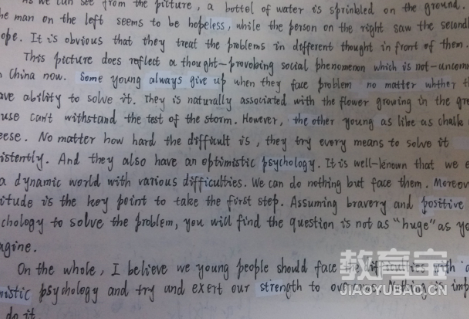 As we can see from the picture, a bottel of water is sprinbled on the ground.
he man on the left seems to be hopeless, while the person on the right saw the second
ope. It is obvious that they treat the problems in different thought in front of them.
This picture does reflect a thought-provobing social phenomenon which is not-uncomm
n China now. Some young always give up when they face problem no matter whther th
ave ability to solve it. They is naturally associated with the flower growing in the gre
use can't withstand the test of the storm. However, the other young as like as chalk
eese. No matter how hard the difficult is, they try every means to solve it
sistently. And they also have an optimistic psychology. It is well-known that we e
a dynamic world with various difficulties. We can do nothing but face them. Moreov
titude is the key point to take the first step. Assuming bravery and positive
ychology to solve the problem, you will find the question is not as "huge" as yo
agine.
On the whole, I believe we young people should face difficulties with
mistic psychology and try and exert our strength to Nothing is imp
do it.
教育宝
JIAOYUBAO.CN